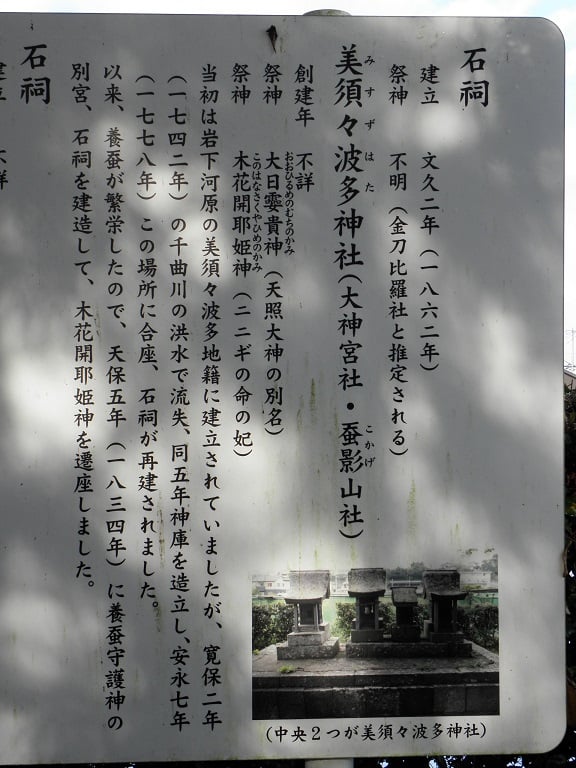 石祠
建立　文久二年（一八六二年）
祭神　不明（金刀比羅社と推定される）
美須々波多神社（大神宮社・蚕影山社）
みすずはた
こかげ
創建年　不詳
祭神　大日孁貴神（天照大神の別名）
おおひるめのむちのかみ
祭神　木花開耶姫神（ニニギの命の妃）
このはなさくやひめのかみ
当初は岩下河原の美須々波多地籍に建立されていましたが、寛保二年
（一七四二年）の千曲川の洪水で流失、同五年神庫を造立し、安永七年
（一七七八年）この場所に合座、石祠が再建されました。
以来、養蚕が繁栄したので、天保五年（一八三四年）に養蚕守護神の
別宮、石祠を建造して、木花開耶姫神を遷座しました。
(中央２つが美須々波多神社)
石祠
建立　不詳